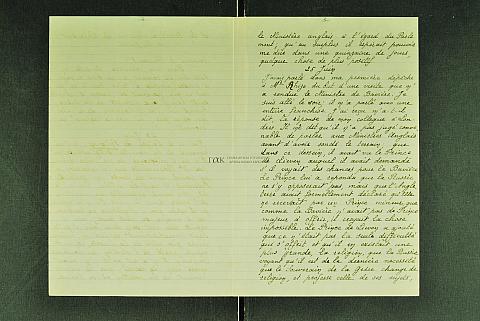 le Ministère anglais à l'égard du Parle
ment, qu'au surplus il espérait pouvoir
me dire dans une quinzaine de jours,
quelque chose de plus positif.
25 Juin
J'avais parlé dans ma première dépêche
à Mr Rhizo du but d'une visite que
a rendue le Ministre de Bavière. Je
suis allé le voir; il m'a parlé avec une
entière franchise. J'ai reçu m'a-t-il
dit, la réponse de mon collègue d'Lon
dres. Il me dit qu'il n'a pas jugé conve
nable de parler aux Ministres Anglais
avant d'avoir sondé le terrain que
dans ce dessein, il avait vu le Prince
de Lieven auquel il avait demandé
s'il voyait des chances pour la Bavière
Le Prince lui a répondu que la Russie
ne s'y opposerait pas, mais que l'Angle
terre avait formellement déclaré qu'elle
ne recevrait pas un Prince mineur, que
comme la Bavière n'avait pas de Prince
majeur à offrir, il croyait la chose
impossible. Le Prince de Lieven a ajouté
que ce n'était pas la seule difficulté
qui s'offrit et qu'il en existait une
plus grande, la religion, que la Russie
croyant qu'il est de la dernière nécessité
que le Souverain de la Grèce change de
religion, et professe celle de ses sujets,
ΓΑΚ